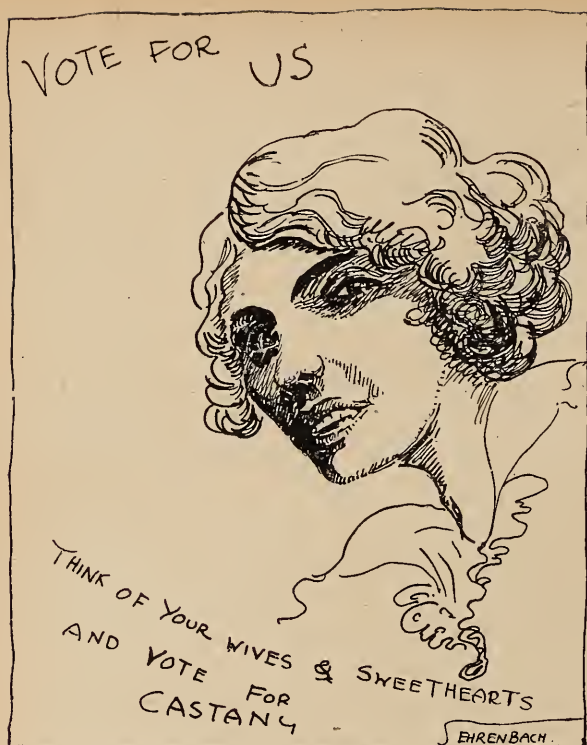 VOTE FOR US
THINK OF YOUR WIVES & SWEETHEARTS
AND VOTE FOR
CASTANY
EHRENBACH.